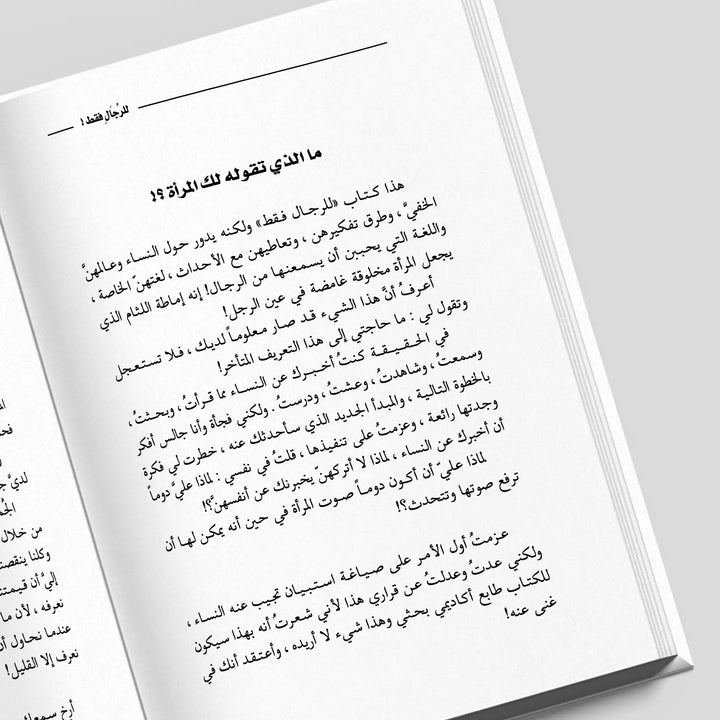 للرجال فقط !
ما الذي تقوله لك المرأة ؟!
هذا كتاب «للرجال فقط» ولكنه يدور حول النساء وعالمهنَّ
الخفيَّ ، وطرق تفكيرهن ، وتعاطيهن مع الأحداث ، لغتهنّ الخاصة ،
واللغة التي يحببن أن يسمعنها من الرجال! إنه إماطة اللثام الذي
يجعل المرأة مخلوقة غامضة في عين الرجل!
أعرفُ أنَّ هذا الشيء قد صار معلوماً لديك ، فلا تستعجل
وتقول لي : ما حاجتي إلى هذا التعريف المتأخر!
في الحقيقة كنتُ أخبرك عن النساء مما قرأتُ ، وبحثتُ ،
وسمعتُ ، وشاهدتُ ، وعشتُ ، ودرستُ . ولكني فجأة وأنا جالس أفكر
بالخطوة التالية ، والمبدأ الجديد الذي سأحدثك عنه ، خطرت لي فكرة
وجدتها رائعة ، وعزمتُ على تنفيذها ، قلتُ في نفسي : لماذا عليَّ دوماً
أن أخبرك عن النساء ، لماذا لا أتركهنّ يخبرنك عن أنفسهنَّ؟!
لماذا عليّ أن أكون دوماً صوت المرأة في حين أنه يمكن لها أن
ترفع صوتها وتتحدث؟!
عزمتُ أول الأمر على صياغة استبيان تجيب عنه النساء ،
ولكني عدتُ وعدلتُ عن قراري هذا لأني شعرتُ أنه بهذا سيكون
للكتاب طابع أكاديمي بحثي وهذا شيء لا أريده ، وأعتقد أنك في
غنى عنه!
من خلال
وكلنا ينقصنا
إليّ أن قيمتنا
نعرفه ، لأن ما
عندما نحاول أن
نعرف إلا القليل!
أرخِ سمعك